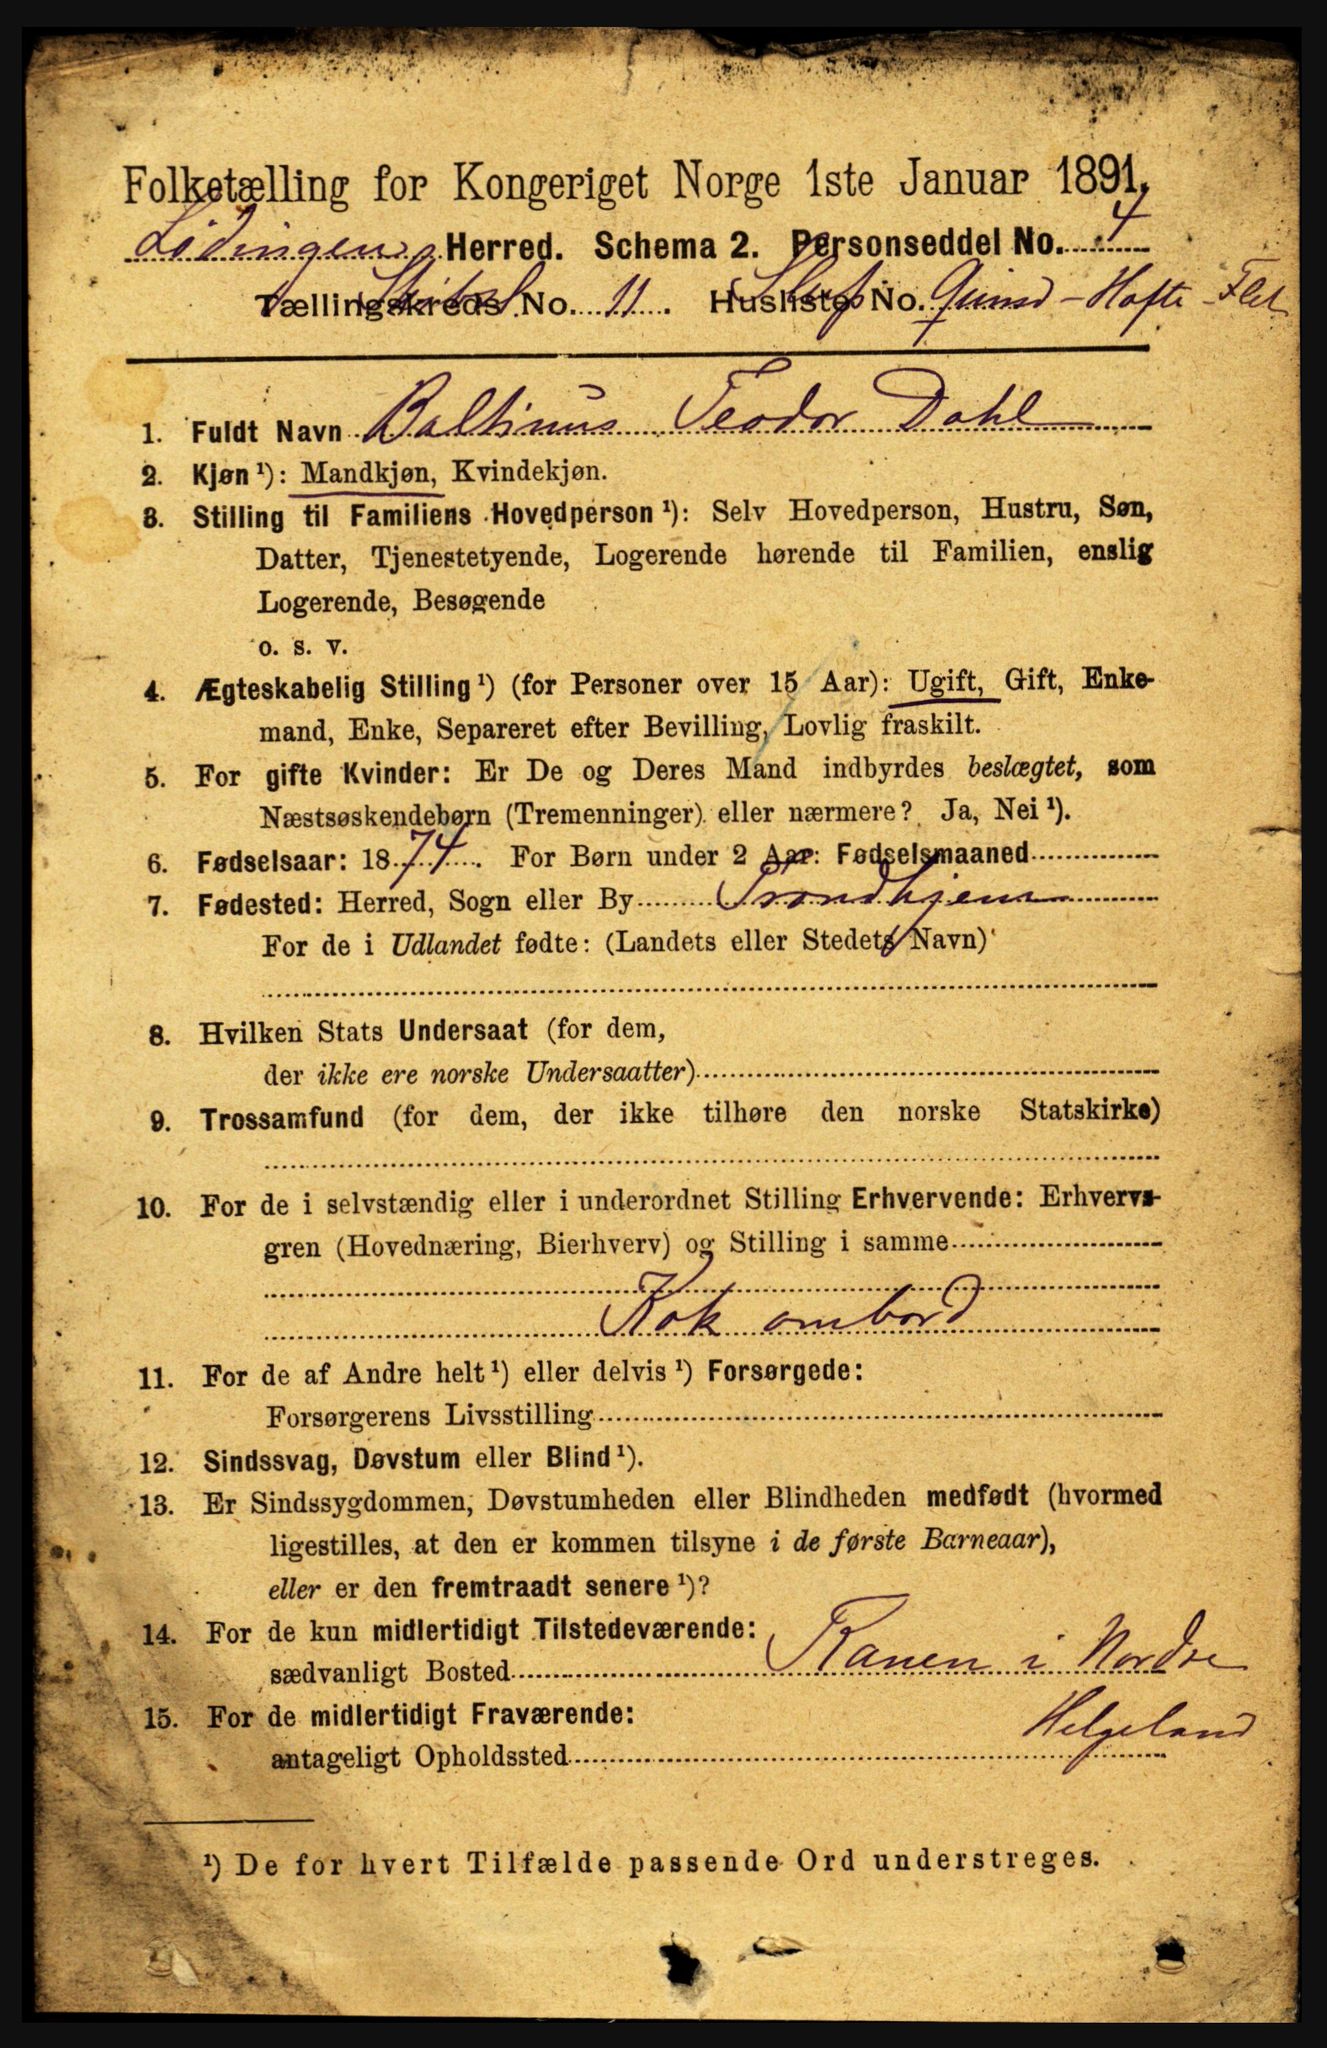 Folketælling for Kongeriget Norge 1ste Januar 1891.
Lødingen Herred. Schema 2. Personseddel No. 4
Tællingskreds No. 11. Husliste No.
1. Fuldt Navn Baltinus Teodor Dahl
2. Kjøn ¹): Mandkjøn, Kvindekjøn.
3. Stilling til Familiens Hovedperson ¹): Selv Hovedperson, Hustru, Søn,
Datter, Tjenestetyende, Logerende hørende til Familien, enslig
Logerende, Besøgende
o. s. v.
4. Ægteskabelig Stilling ¹) (for Personer over 15 Aar): Ugift, Gift, Enke-
mand, Enke, Separeret efter Bevilling, Lovlig fraskilt.
5. For gifte Kvinder: Er De og Deres Mand indbyrdes beslægtet, som
Næstsøskendebørn (Tremenninger) eller nærmere? Ja, Nei ¹).
6. Fødselsaar: 1874. For Børn under 2 Aar: Fødselsmaaned
7. Fødested: Herred, Sogn eller By Trondhjem
For de i Udlandet fødte: (Landets eller Stedets Navn)
8. Hvilken Stats Undersaat (for dem,
der ikke ere norske Undersaatter)
9. Trossamfund (for dem, der ikke tilhøre den norske Statskirke)
10. For de i selvstændig eller i underordnet Stilling Erhvervende: Erhvervs-
gren (Hovednæring, Bierhverv) og Stilling i samme
Kok ombord
11. For de af Andre helt ¹) eller delvis ¹) Forsørgede:
Forsørgerens Livsstilling
12. Sindssvag, Døvstum eller Blind ¹).
13. Er Sindssygdommen, Døvstumheden eller Blindheden medfødt (hvormed
ligestilles, at den er kommen tilsyne i de første Barneaar),
eller er den fremtraadt senere ¹)?
14. For de kun midlertidigt Tilstedeværende:
sædvanligt Bosted Ranen i Nordre
Helgeland
15. For de midlertidigt Fraværende:
antageligt Opholdssted
¹) De for hvert Tilfælde passende Ord understreges.